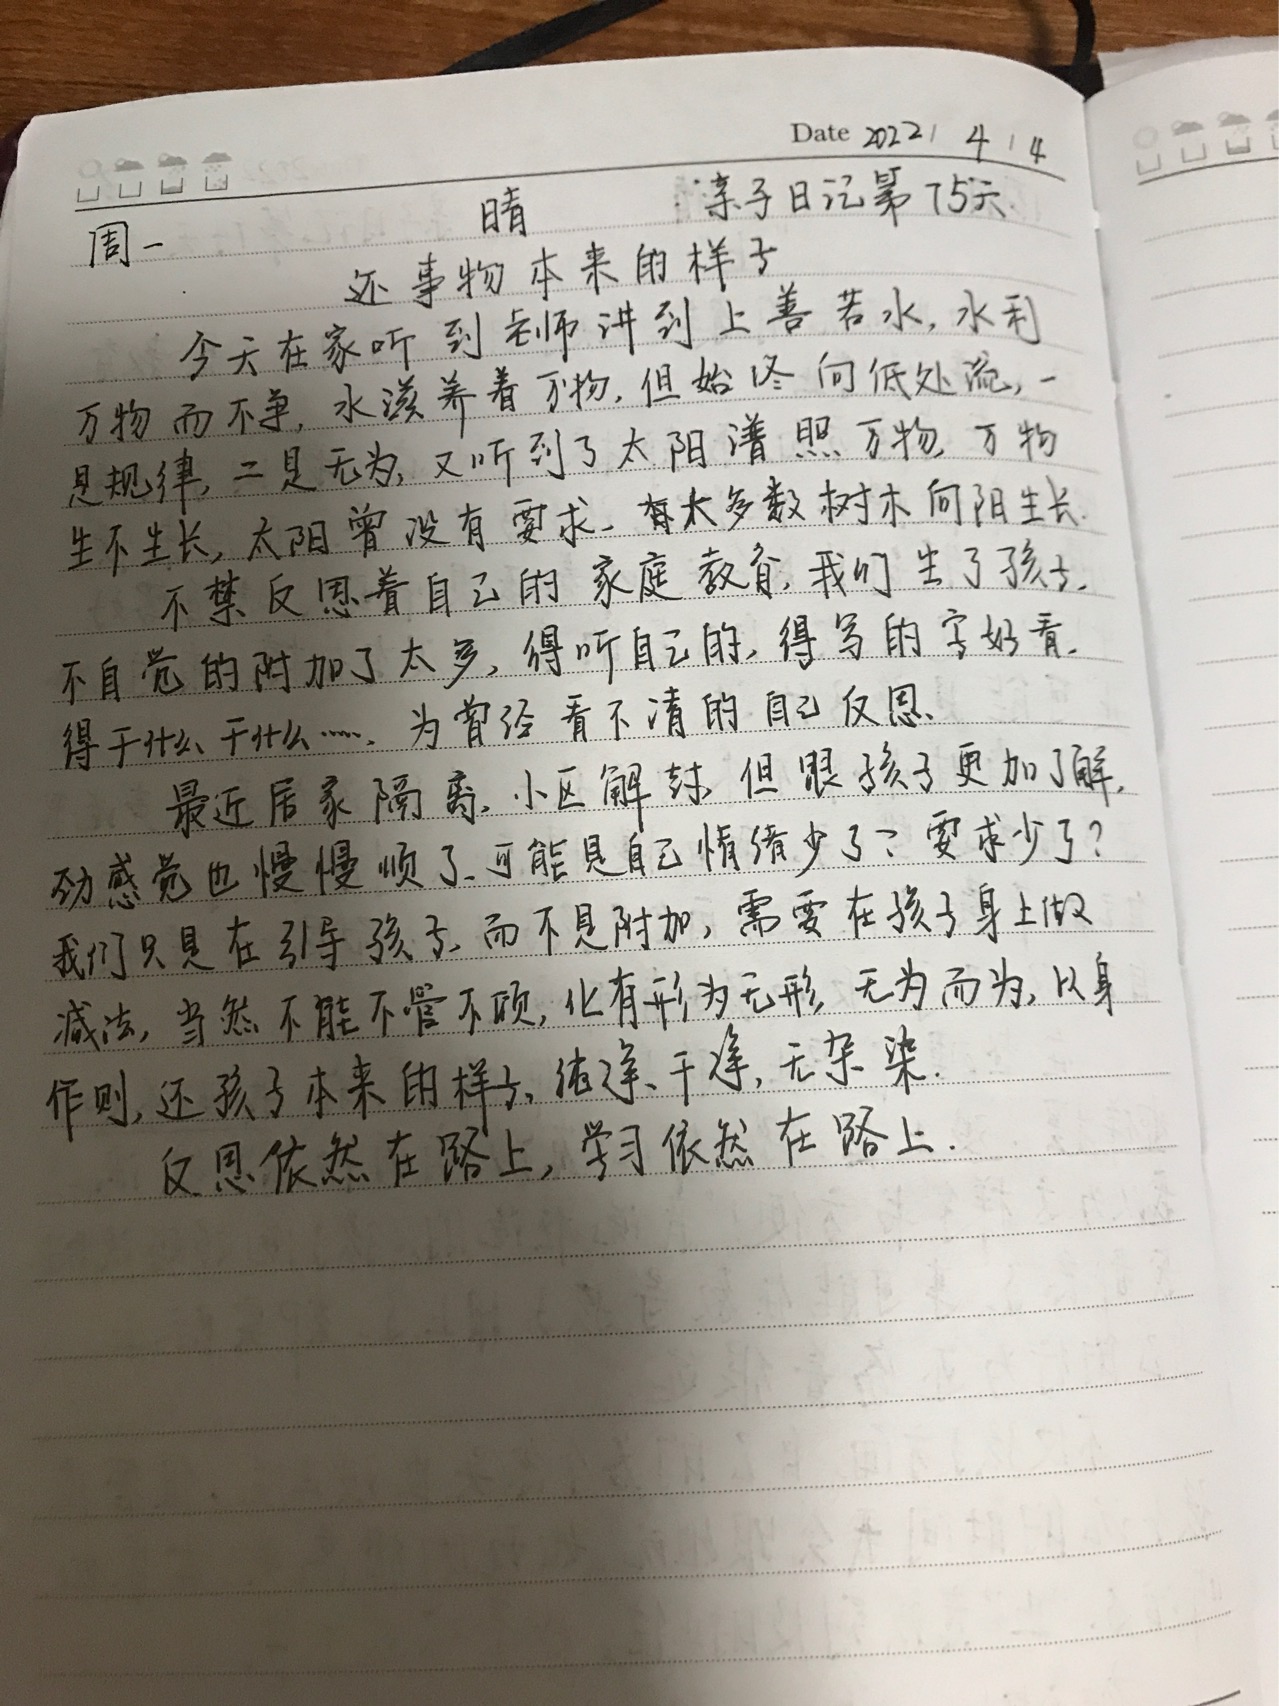 Date 2022 / 4 / 4
周一 晴 亲子日记第75天
还事物本来的样子
今天在家听到老师讲到上善若水，水利
万物而不争，水滋养着万物，但始终向低处流，一
是规律，二是无为，又听到了太阳普照万物，万物
生不生长，太阳曾没有要求，大多数树木向阳生长.
不禁反思着自己的家庭教育，我们生了孩子，
不自觉的附加了太多，得听自己的，得写的字好看，
得干什么、干什么……，为曾经看不清的自己反思、
最近居家隔离，小区解封，但跟孩子更加了解，
劲感觉也慢慢顺了、可能是自己情绪少了？要求少了？
我们只是在引导孩子、而不是附加，需要在孩子身上做
减法，当然不能不管不顾，化有形为无形，无为而为，以身
作则，还孩子本来的样子，干净，无杂染.
反思依然在路上，学习依然在路上.